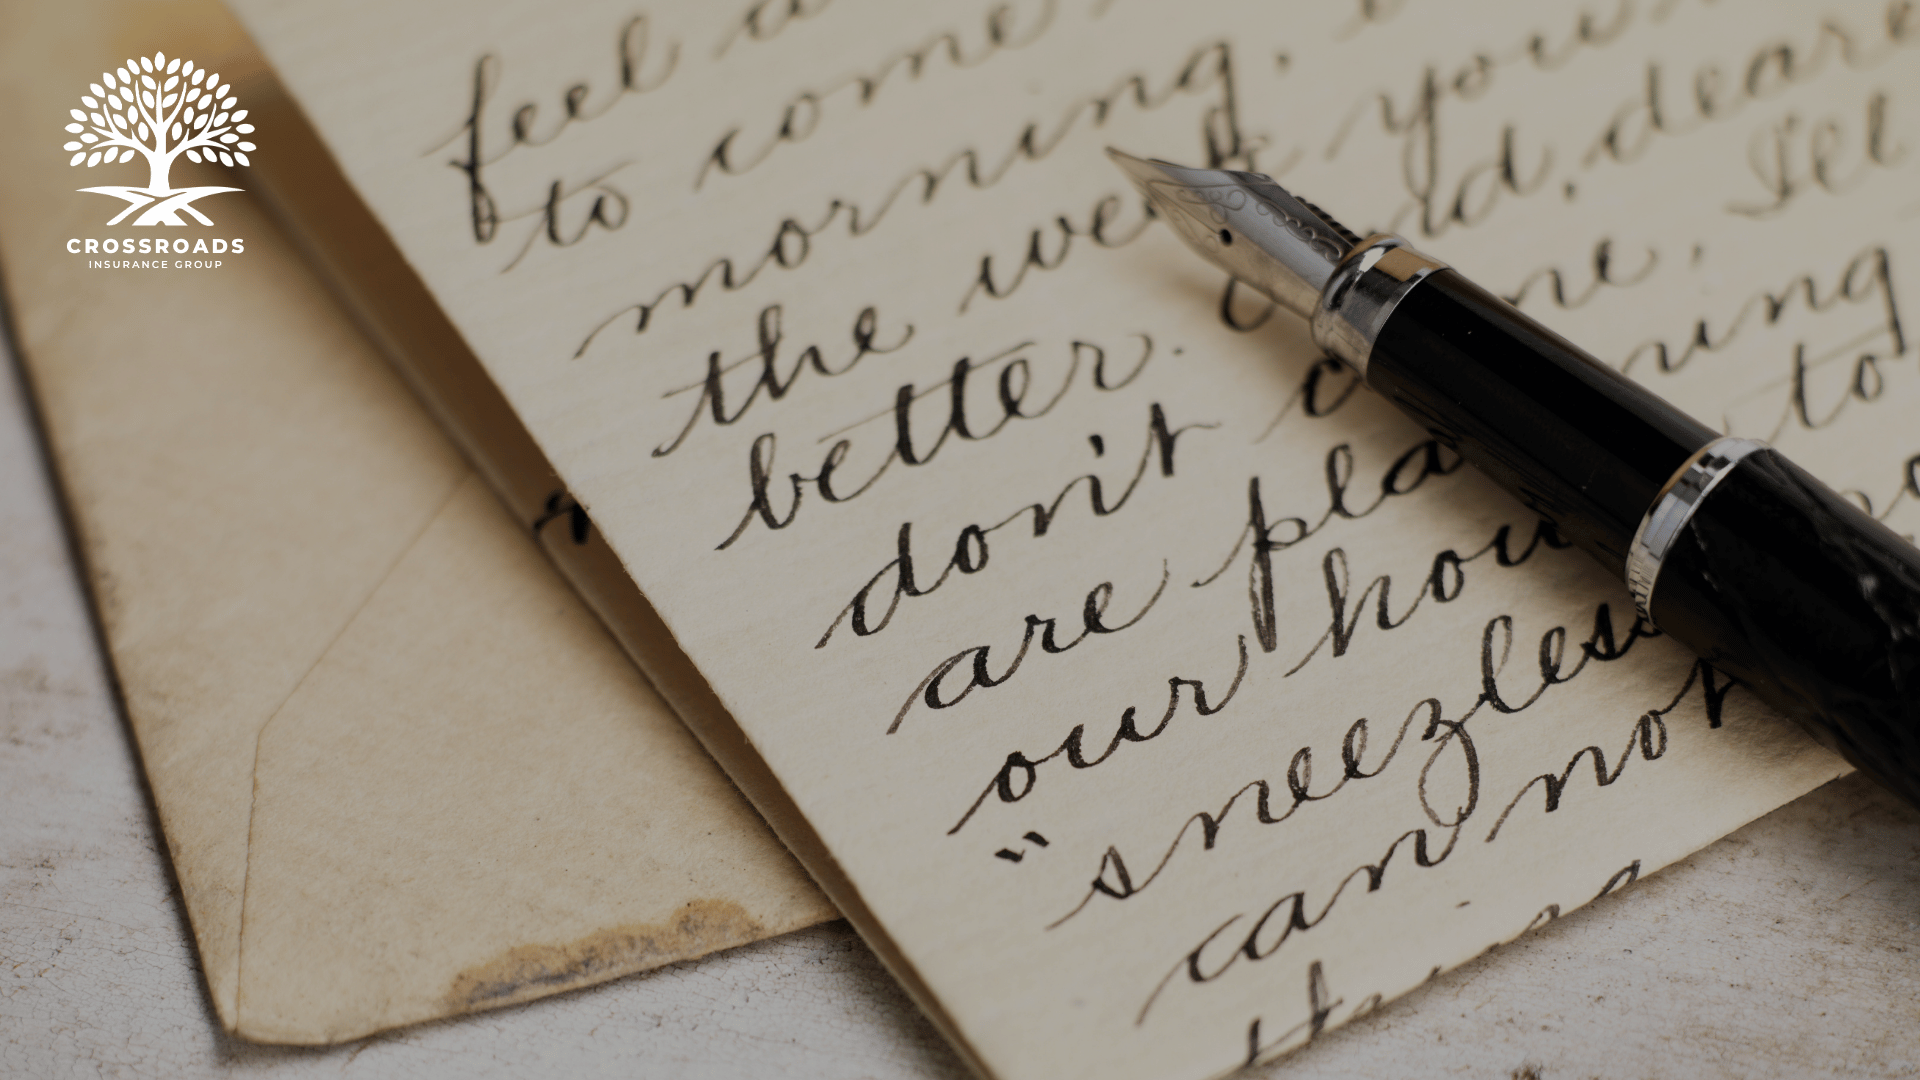 CROSSROADS
INSURANCE GROUP
feel a
to come
morning.
the we you
better. d, deare
don't ne. I'll
are pla ning
our hou to
"sneezles
can not